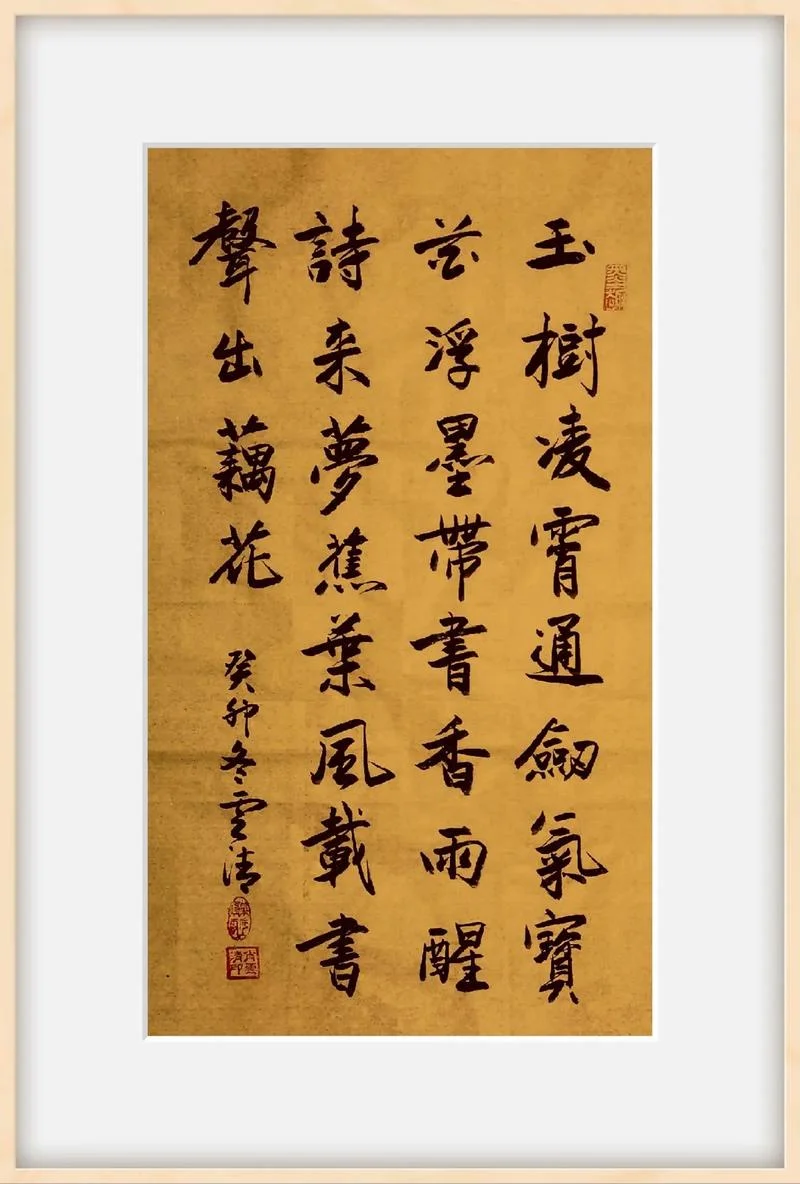 玉樹凌霄通劔氣寶
芸浮墨帶書香雨醒
詩来夢蕉葉風載書
聲出藕花
癸卯冬雲清